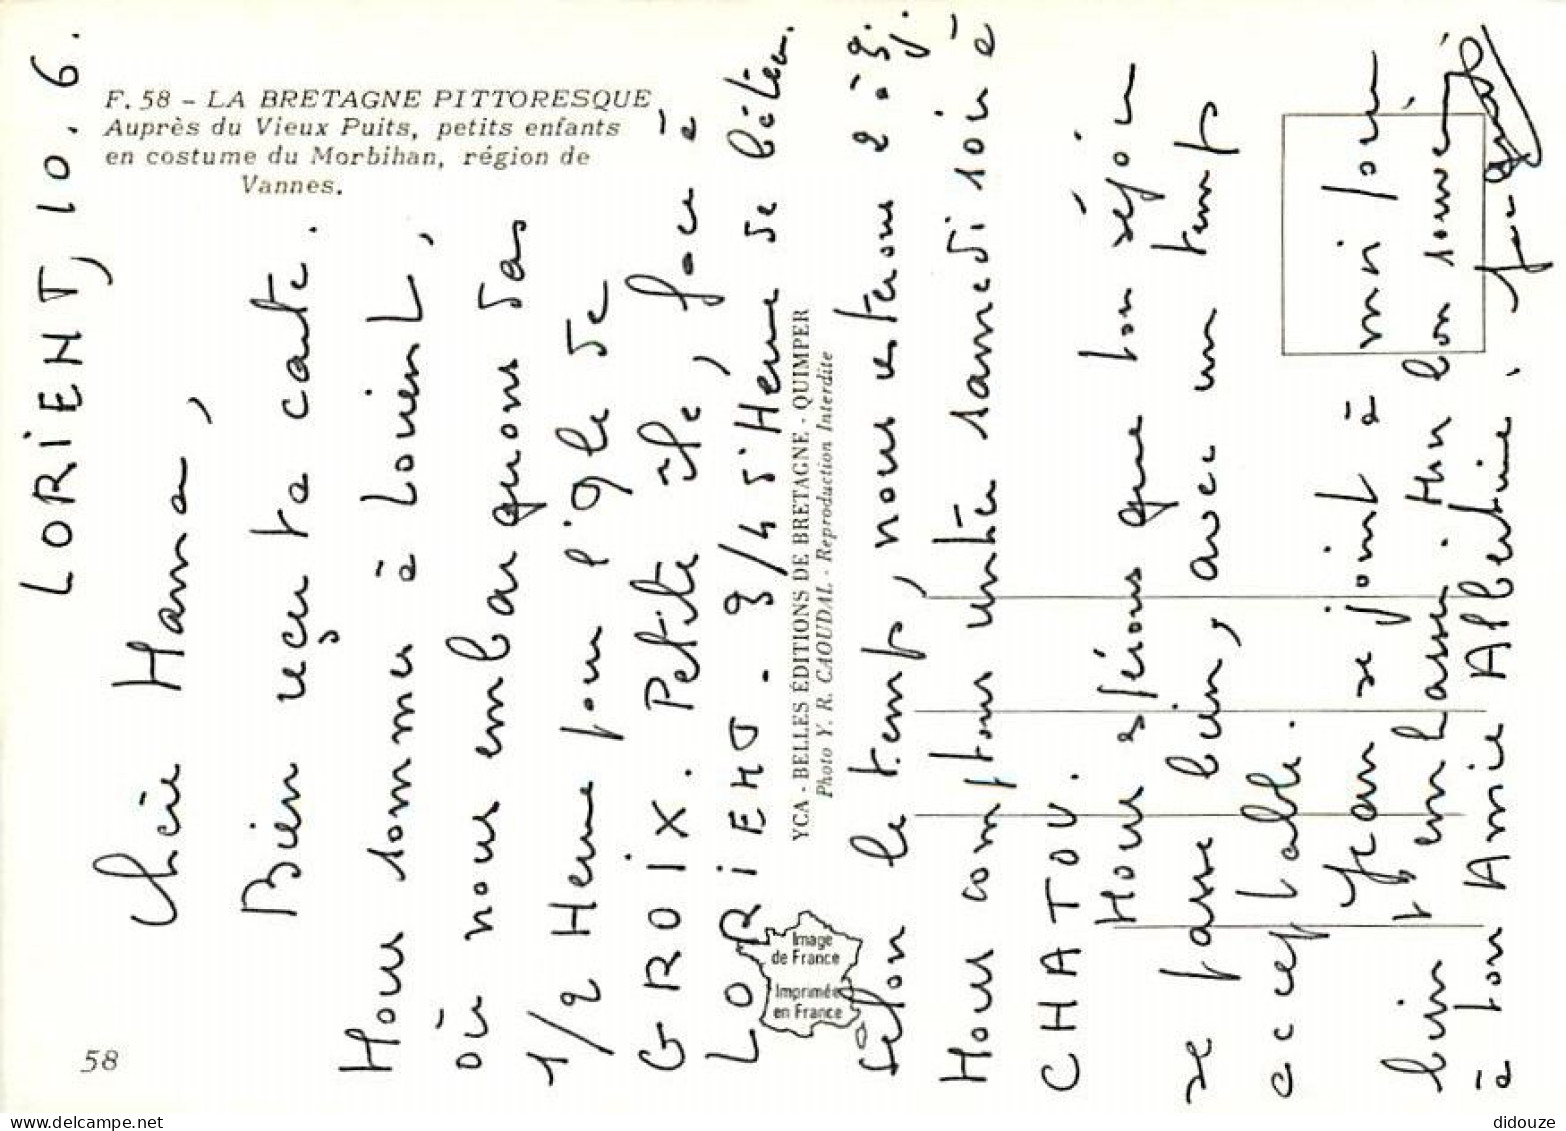 F. 58 - LA BRETAGNE PITTORESQUE
Auprès du Vieux Puits, petits enfants
en costume du Morbihan, région de
Vannes.
LORIENT, 10.6.
Chère Hama,
Bien reçu ta carte.
Nous sommes à Lorient,
où nous embarquons das
1/2 Heure pour l'Ile de
GROIX. Petite île, face à
LORIENT. 3/4 d'Heure de bateau.
Selon le temps, nous resterons 2 à 3 j.
Nous comptons rentrer samedi soir à
CHATOU.
Nous espérons que ton séjour
se passe bien, avec un temps
acceptable.
Jean se joint à moi pour
bien t'embrasser. Mon bon souvenir
à ton Amie Albertine.
YCA - BELLES ÉDITIONS DE BRETAGNE - QUIMPER
Photo Y. R. CAOUDAL - Reproduction Interdite
Image
de France
Imprimée
en France
58
didouze